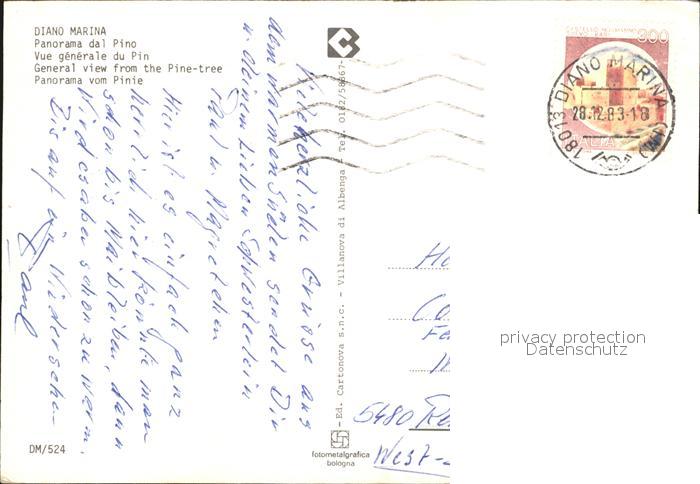 DIANO MARINA
Panorama dal Pino
Vue générale du Pin
General view from the Pine-tree
Panorama vom Pinie
Viele herzliche Grüsse aus
dem warmen Süden sendet Dir
u. Deinem lieben Schwesterlein
Paul u. Magretchen
Hier ist es einfach ganz
herrlich hier könnte man
schon bis Mai bleiben, dann
wird es aber schon zu warm.
Bis auf ein Wiedersehen
Paul
- Ed. Cartonova s.n.c. - Villanova di Albenga - Tel. 0182/58667-
fotometalgrafica
bologna
DM/524
300
18013 DIANO MARINA (IM)
28.12.83-18
5480
West-
privacy protection
Datenschutz